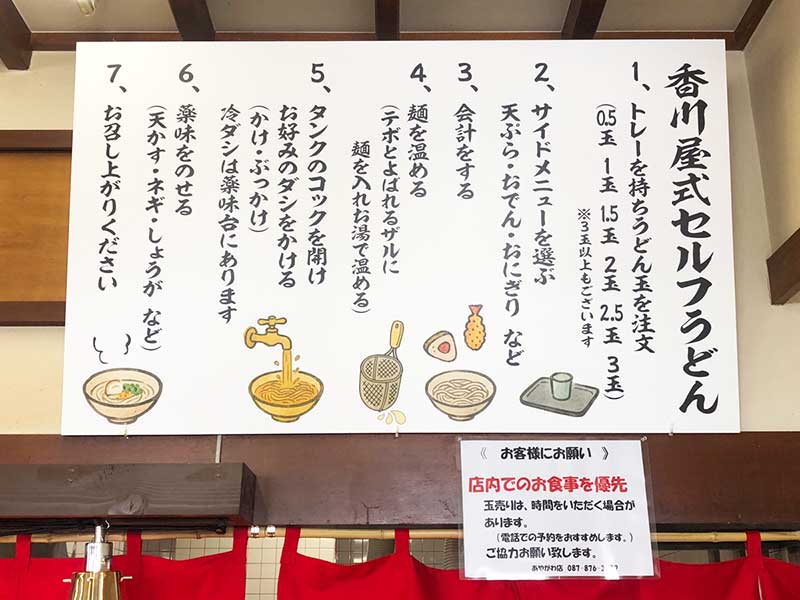 香川屋式セルフうどん
1、トレーを持ちうどん玉を注文
(0.5玉 1玉 1.5玉 2玉 2.5玉 3玉)
※3玉以上もございます
2、サイドメニューを選ぶ
天ぷら・おでん・おにぎり など
3、会計をする
4、麺を温める
(テボとよばれるザルに
麺を入れお湯で温める)
5、タンクのコックを開け
お好みのダシをかける
(かけ・ぶっかけ)
冷ダシは薬味台にあります
6、薬味をのせる
(天かす・ネギ・しょうが など)
7、お召し上がりください
《 お客様にお願い 》
店内でのお食事を優先
玉売りは、時間をいただく場合が
あります。
(電話での予約をおすすめします。)
ご協力お願い致します。
あやがわ店 087-876-